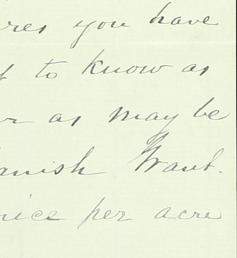 res you have
t to know as
r as may be
anish Grant.
rice per acre